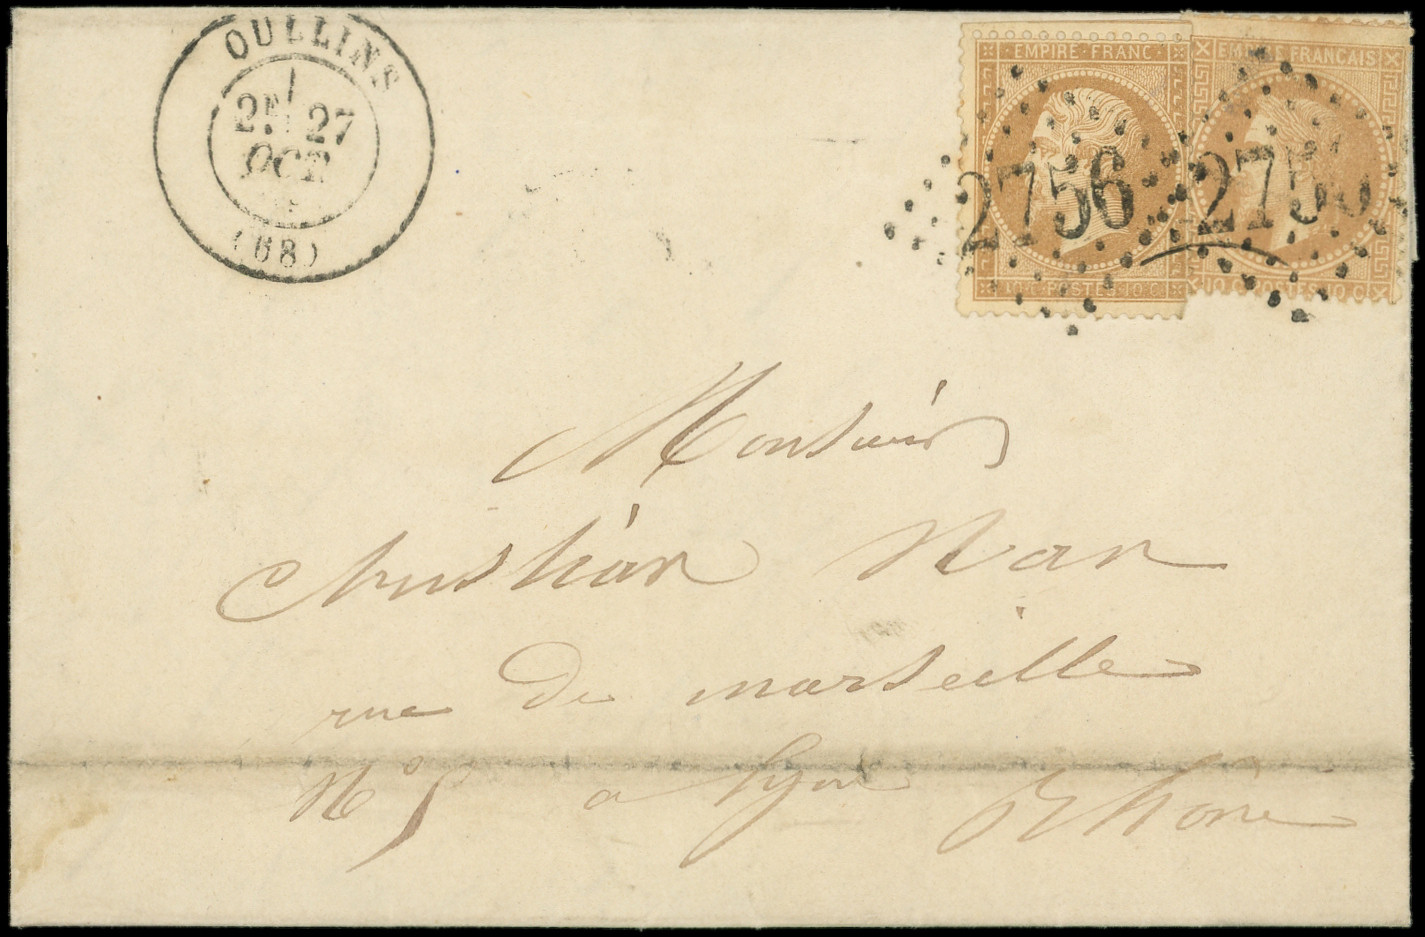 OULLINS
2E 27
OCT
(68)
EMPIRE FRANC
10 C. POSTES 10 C.
EMPIRE FRANÇAIS
10 C. POSTES 10 C.
2756
2756
Monsieur
christian Nan
rue De marseille
N° 5 a Lyon Rhône